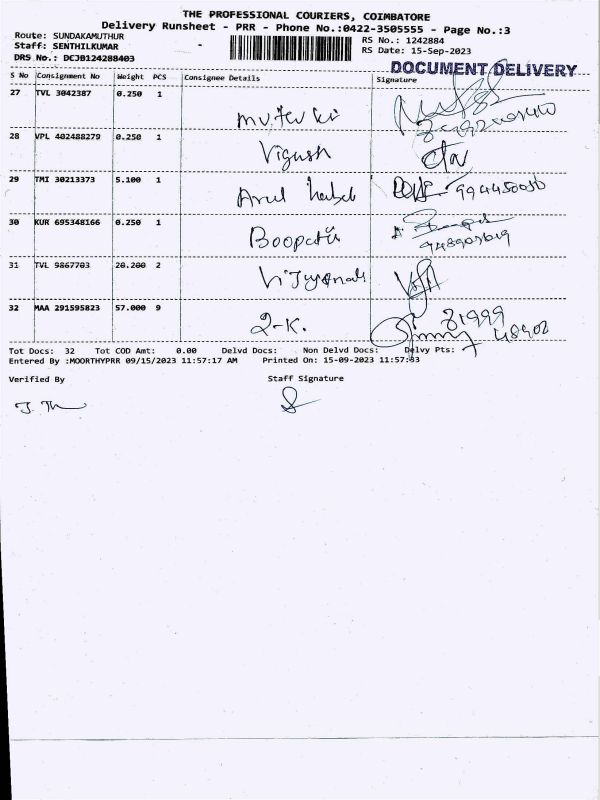 THE PROFESSIONAL COURIERS, COIMBATORE
Delivery Runsheet - PRR - Phone No.:0422-3505555 - Page No.:3
Route: SUNDAKAMUTHUR
RS No.: 1242884
Staff: SENTHILKUMAR -
RS Date: 15-Sep-2023
DRS No.: DCJB124288403
DOCUMENT DELIVERY
S No Consignment No Weight PCS Consignee Details Signature
27 TVL 3042387 0.250 1
28 VPL 402488279 0.250 1 Vignesh
29 TMI 30213373 5.100 1 Arul
30 KUR 695348166 0.250 1 Boopathi
31 TVL 9867703 20.200 2
32 MAA 291595823 57.000 9
Tot Docs: 32 Tot COD Amt: 0.00 Delvd Docs: Non Delvd Docs: Delvy Pts:
Entered By :MOORTHYPRR 09/15/2023 11:57:17 AM Printed On: 15-09-2023 11:57:33
Verified By Staff Signature